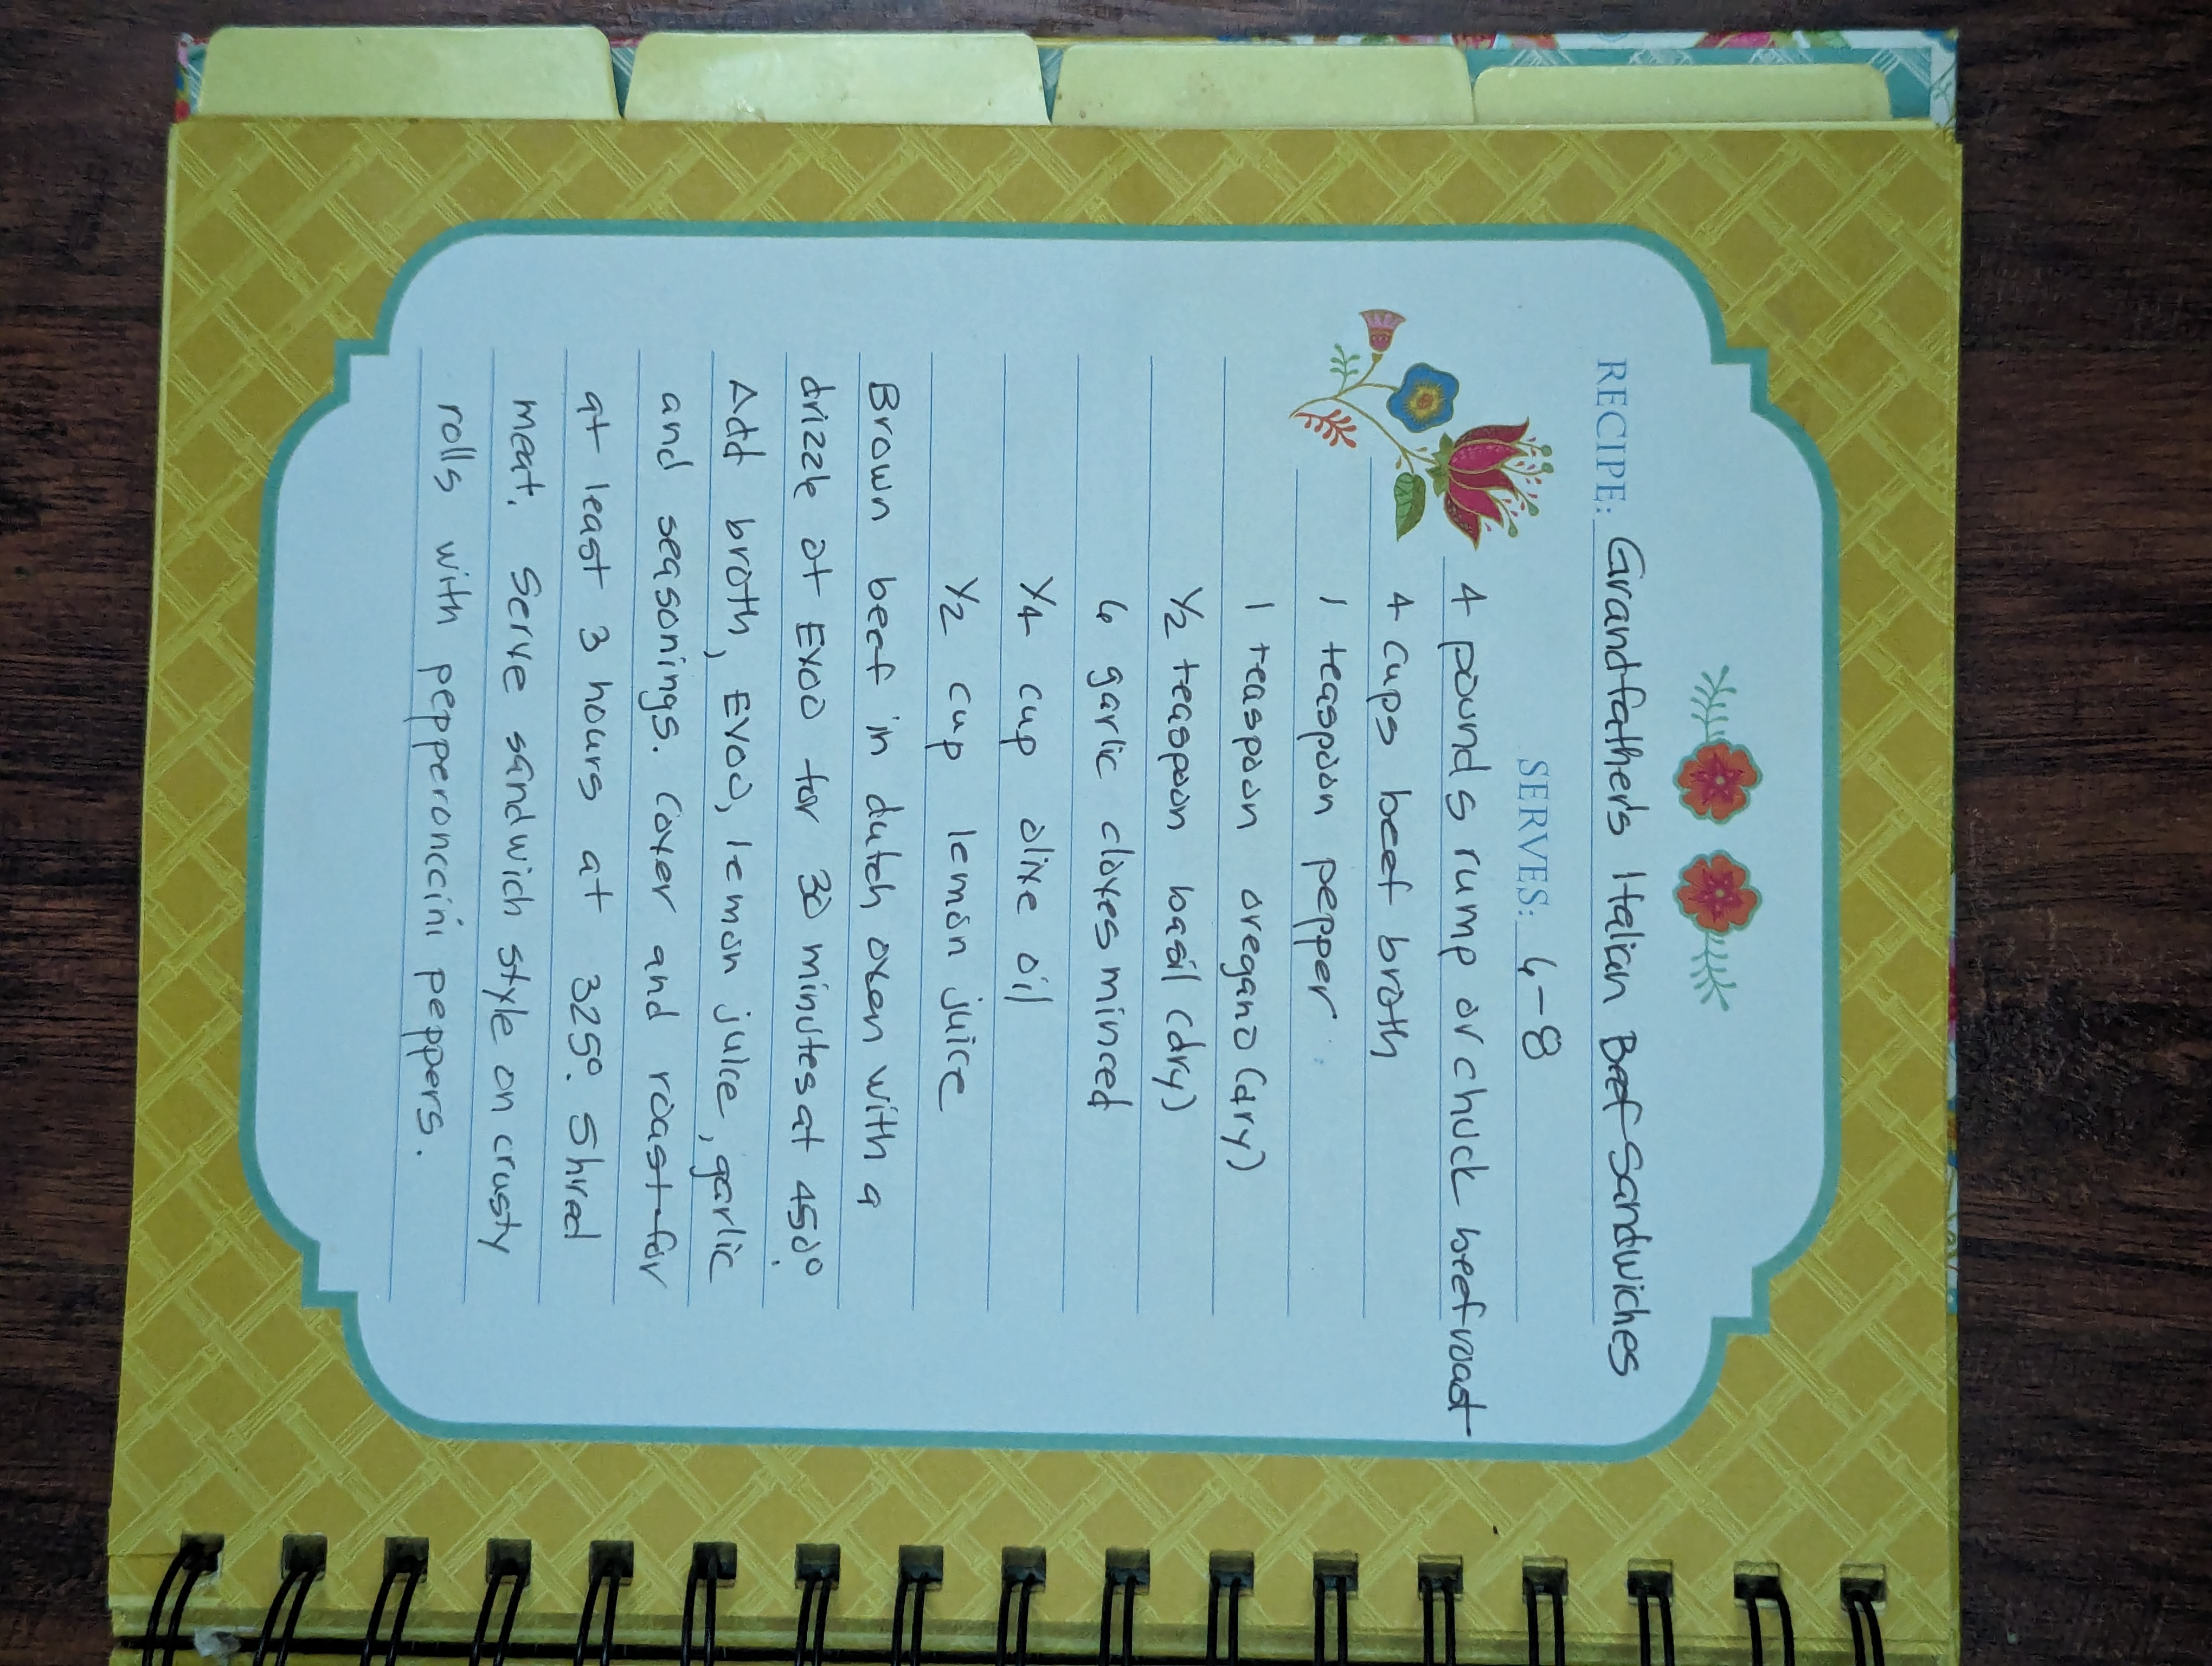 RECIPE: Grandfather's Italian Beef Sandwiches
SERVES: 6-8
4 pounds rump or chuck beef roast
4 cups beef broth
1 teaspoon pepper
1 teaspoon oregano (dry)
1/2 teaspoon basil (dry)
6 garlic cloves minced
1/4 cup olive oil
1/2 cup lemon juice
Brown beef in dutch oven with a
drizzle of EVOO for 30 minutes at 450°.
Add broth, EVOO, lemon juice, garlic
and seasonings. Cover and roast for
at least 3 hours at 325°. Shred
meat. Serve sandwich style on crusty
rolls with pepperonccini peppers.